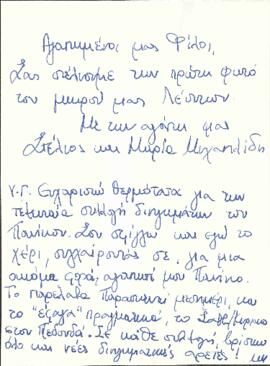 Αγαπημένοι μας Φίλοι,
Σας στέλνουμε την πρώτη φωτό
του μικρού μας Λέοντα.
Με την αγάπη μας
Στέλιος και Μαρία Μιχαηλίδη
Υ.Γ. Ευχαριστώ θερμότατα για την
τελευταία συλλογή διηγημάτων του
Πανίκου. Σου σφίγγω και εγώ το
χέρι, συγχαίροντάς σε για μια
ακόμα φορά, αγαπητέ μου Πανίκο.
Το παρέλαβα Παρασκευή μεσημέρι, και
το "έφαγα" πραγματικά, το Σαββ/κύριακο
στον Πεδουλά. Σε κάθε συλλογή, βρίσκω
όλο και νέες διηγηματικές αρετές!